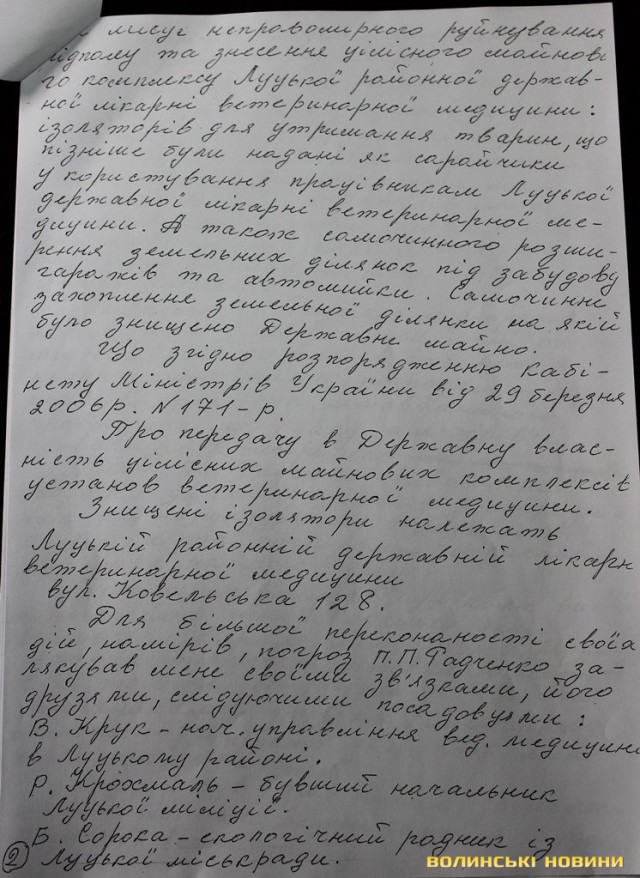 лисуг неправомірного руйнування
підпалу та знесення цілісного майнові
го комплексу Луцької районної держав-
ної лікарні ветеринарної медицини:
ізоляторів для утримання тварин, що
пізніше були надані як сарайчики
у користування працівникам Луцької
державної лікарні ветеринарної ме-
дицини. А також самочинного розши-
рення земельних ділянок під забудову
гаражів та автомийки. Самочинне
захоплення земельної ділянки на якій
було знищено Державне майно.
Що згідно розпорядженню Кабі-
нету Міністрів України від 29 березня
2006р. N171-р.
Про передачу в Державну влас-
ність цілісних майнових комплексів
установ ветеринарної медицини.
Знищені ізолятори належать
Луцькій районній державній лікарн
ветеринарної медицини
вул. Ковельська 128.
Для більшої переконаності своїх
дій, намірів, погроз П.П. Гадченко за-
лякував мене своїми зв'язками, його
друзями, слідуючими посадовцями:
В. Крук – нач. управління вед. медицини
в Луцькому районі.
Р. Крохмаль – бувший начальник
Луцької міліції.
Б. Сорока – екологічний радник із
2 Луцької міськради.
ВОЛИНСЬКІ НОВИНИ